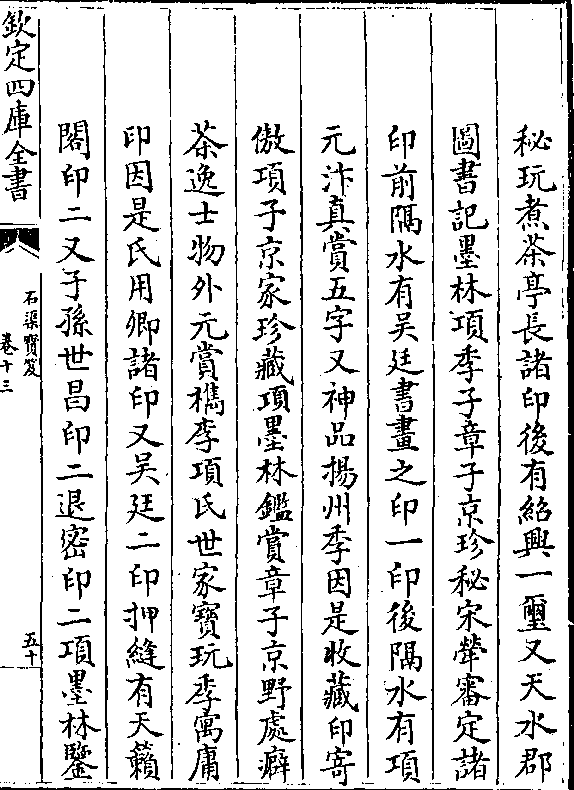 秘玩煮茶亭長諸印後有紹興一璽又天水郡
圖書記墨林項季子章子京珍秘宋犖審定諸
印前隔水有吳廷書畫之印一印後隔水有項
元汴真賞五字又神品揚州季因是收藏印寄
傲項子京家珍藏項墨林鑑賞章子京野處癖
茶逸士物外元賞檇李項氏世家寶玩季寓庸
印因是氏用卿諸印又吳廷二印押縫有天籟
閣印二又子孫世昌印二退密印二項墨林鑒
欽定四庫全書
石渠寶笈
卷十三
五十